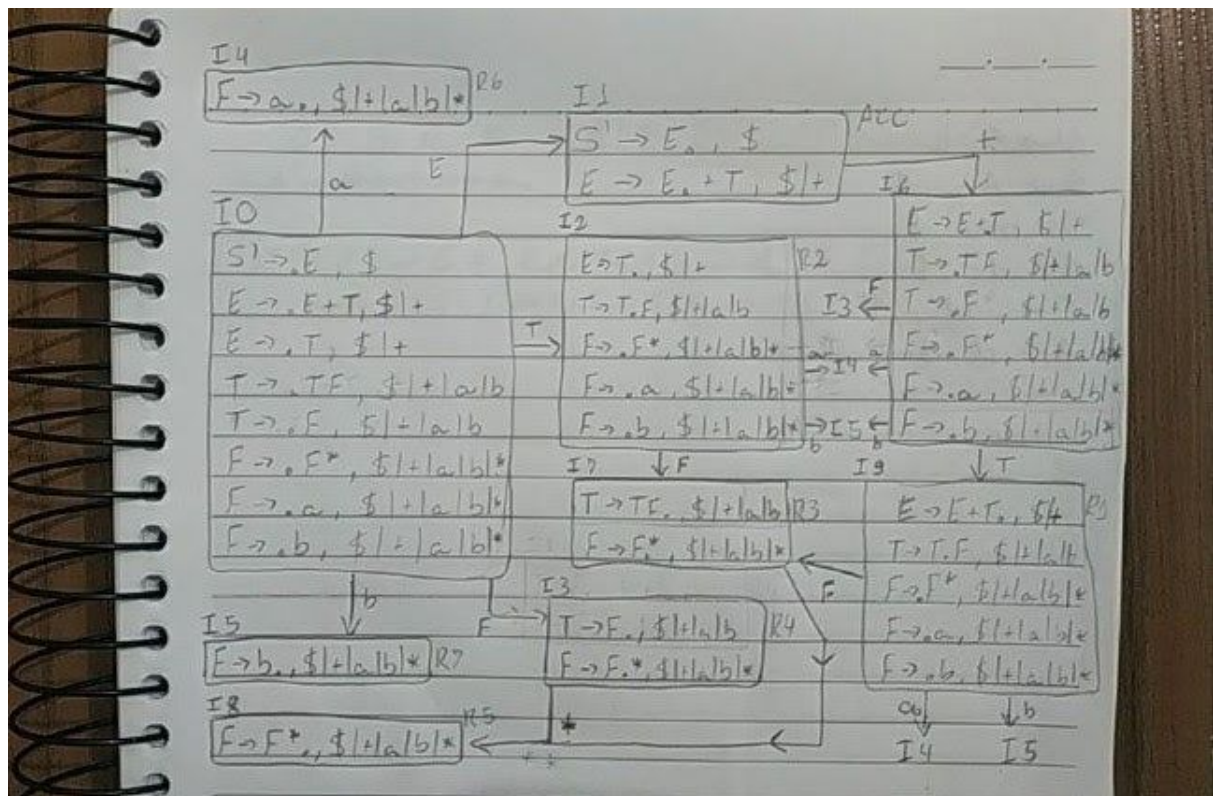 I4
F→a., $|+|a|b|* R6
I1
S'→E., $ ACC
E→E.+T, $|+
+
a
E
I0
S'→.E, $
E→.E+T, $|+
E→.T, $|+
T→.TF, $|+|a|b
T→.F, $|+|a|b
F→.F*, $|+|a|b|*
F→.a, $|+|a|b|*
F→.b, $|+|a|b|*
T
I2
E→T., $|+ R2
T→T.F, $|+|a|b
F→.F*, $|+|a|b|*
F→.a, $|+|a|b|*
F→.b, $|+|a|b|*
I3 F
a I4 a
b I5 b
I6
E→E+.T, $|+
T→.TF, $|+|a|b
T→.F, $|+|a|b
F→.F*, $|+|a|b|*
F→.a, $|+|a|b|*
F→.b, $|+|a|b|*
F
T
I7
T→TF., $|+|a|b R3
F→F.*, $|+|a|b|*
I9
E→E+T., $|+ R1
T→T.F, $|+|a|b
F→.F*, $|+|a|b|*
F→.a, $|+|a|b|*
F→.b, $|+|a|b|*
F
b
F
I3
T→F., $|+|a|b R4
F→F.*, $|+|a|b|*
I5
F→b., $|+|a|b|* R7
I8
F→F*., $|+|a|b|* R5
*
a b
I4 I5